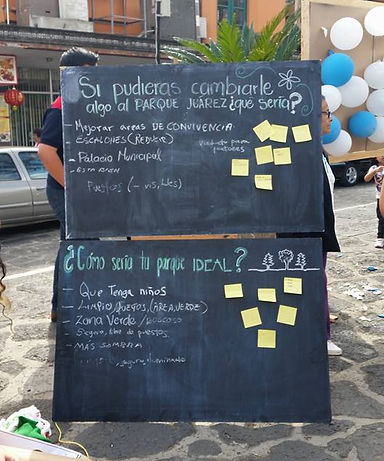 Si pudieras cambiarle
algo al PARQUE JUÁREZ ¿que sería?
- Mejorar areas DE CONVIVENCIA
- ESCALONES (REDUCIR)
para
- Palacio Municipal
- ESTA BIEN
Puestos (- visibles)
¿Cómo sería tu parque IDEAL?
- Que Tenga niños
- LIMPIO/JUEGOS, (ÁREA VERDE)
- Zona Verde / BOSCOSO
- Seguro, libre de puestos.
- MAS SOMBRA
seguro, iluminado